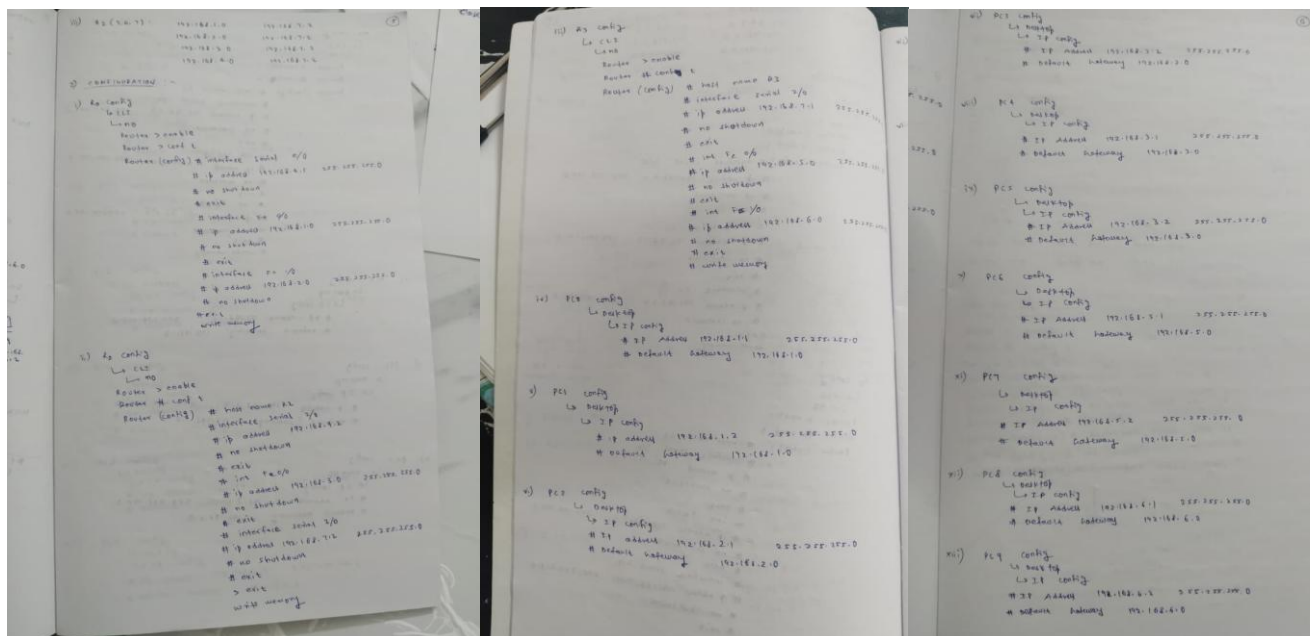 iii) R3 (7.0.7) : 192.168.1.0 192.168.7.2
192.168.2.0 192.168.7.2
192.168.3.0 192.168.7.2
192.168.4.0 192.168.7.2
CONFIGURATION :-
i) config
↳ CLI
↳ no
Router > enable
Router > conf t
Router (config) # interface serial
# ip address 192.168.4.1 255.255.255.0
# no shutdown
# exit
# interface
# ip address 192.168.1.0 255.255.255.0
# no shutdown
# exit
# interface
# ip address 192.168.2.0 255.255.255.0
# no shutdown
# exit
write memory
ii) config
↳ CLI
↳ no
Router > enable
Router # conf t
Router (config) # host name R2
# interface serial
# ip address 192.168.4.2
# no shutdown
# exit
# int Fa 0/0
# ip address 192.168.3.0 255.255.255.0
# no shutdown
# exit
# interface serial 3/0
# ip address 192.168.7.2 255.255.255.0
# no shutdown
# exit
> exit
write memory
iii) R3 config
↳ CLI
↳ no
Router > enable
Router # config t
Router (config) # host name R3
# interface serial 2/0
# ip address 192.168.7.1 255.255.255.
# no shutdown
# exit
# int Fa 0/0
# ip address 192.168.5.0 255.255.
# no shutdown
# exit
# int Fa 1/0
# ip address 192.168.6.0 255.255.255.
# no shutdown
# exit
# write memory
iv) PC0 config
↳ Desktop
↳ IP config
# IP Address 192.168.1.1 255.255.255.0
# Default Gateway 192.168.1.0
v) PC1 config
↳ Desktop
↳ IP config
# ip address 192.168.1.2 255.255.255.0
# Default Gateway 192.168.1.0
vi) config
↳ Desktop
↳ IP config
# IP address 192.168.2.1 255.255.255.0
# Default Gateway 192.168.2.0
PC3 config
↳ Desktop
↳ IP config
# IP Address 192.168.2.2 255.255.255.0
# Default Gateway 192.168.2.0
viii) PC4 config
↳ Desktop
↳ IP config
# IP Address 192.168.3.1 255.255.255.0
# Default Gateway 192.168.3.0
ix) PC5 config
↳ Desktop
↳ IP config
# IP Address 192.168.3.2 255.255.255.0
# Default Gateway 192.168.3.0
x) PC6 config
↳ Desktop
↳ IP config
# IP Address 192.168.5.1 255.255.255.0
# Default Gateway 192.168.5.0
xi) PC7 config
↳ Desktop
↳ IP config
# IP Address 192.168.5.2 255.255.255.0
# Default Gateway 192.168.5.0
xii) PC8 config
↳ Desktop
↳ IP config
# IP Address 192.168.6.1 255.255.255.0
# Default Gateway 192.168.6.0
xiii) PC9 config
↳ Desktop
↳ IP config
# IP Address 192.168.6.2 255.255.255.0
# Default Gateway 192.168.6.0